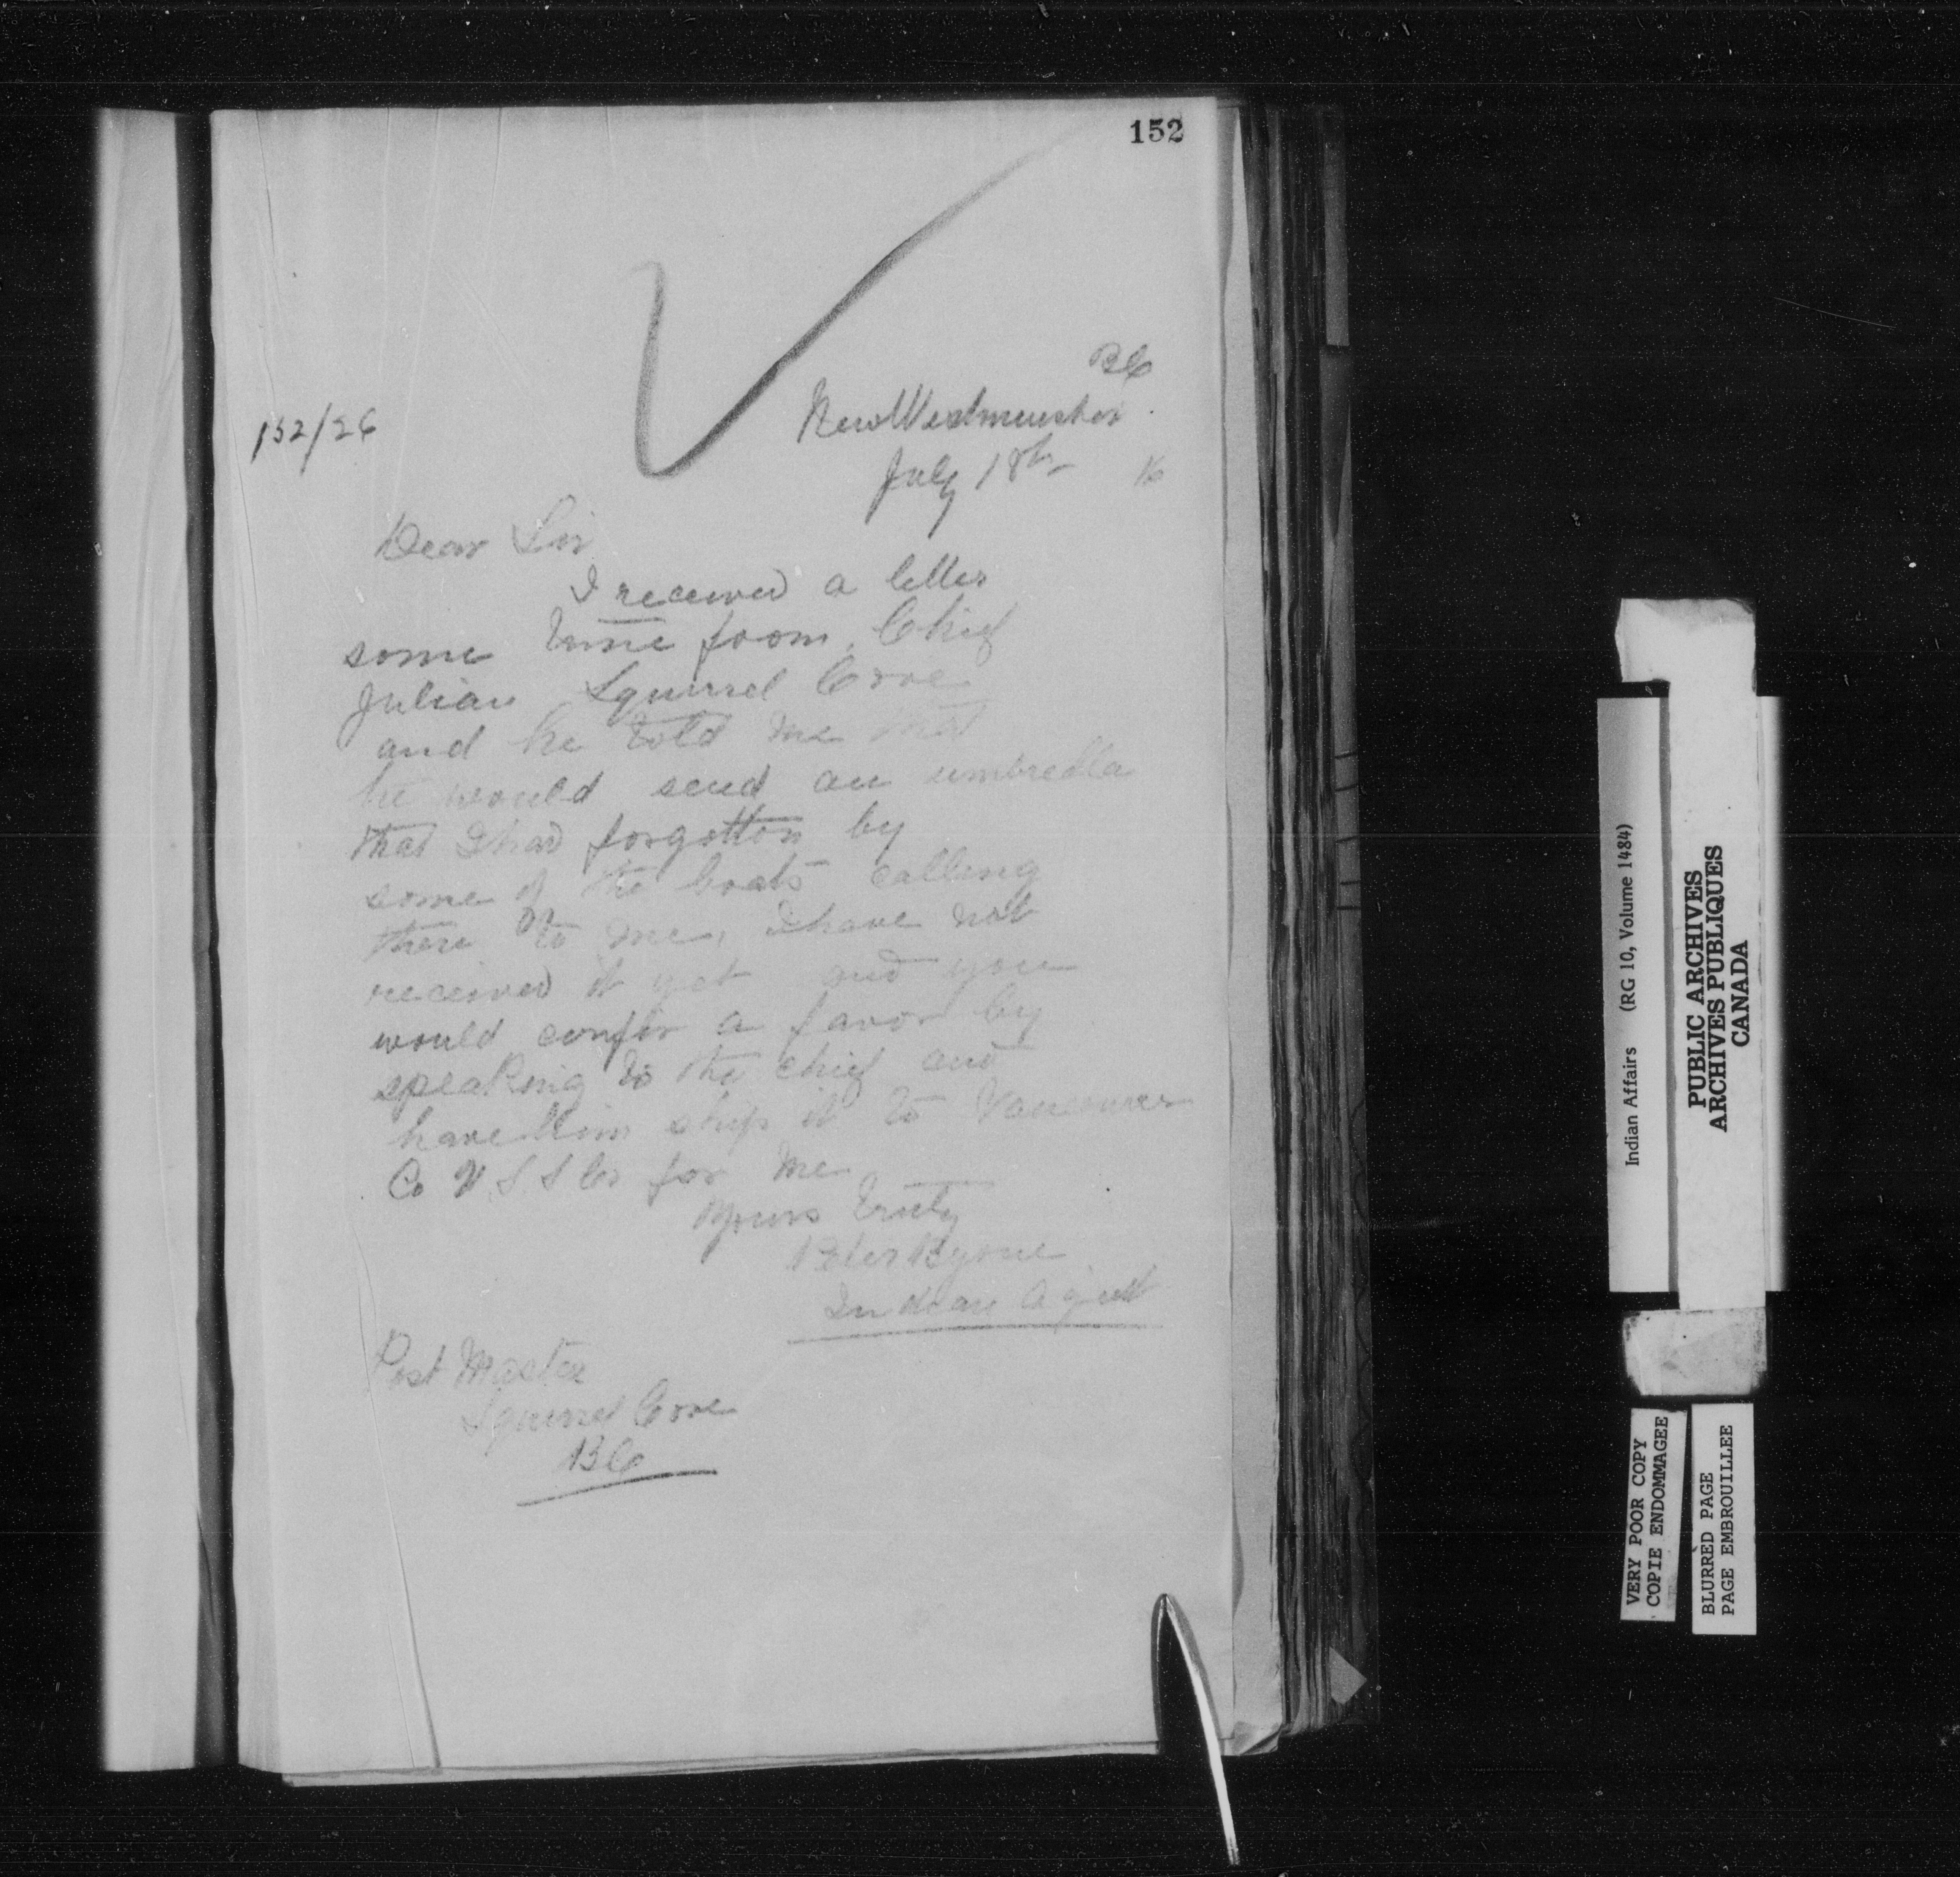 152
BC
New Westminster
152/26
July 18th 16
Dear Sir
I received a letter
some time from Chief
Julian Squirrel Cove
and he told me that
he would send an umbrella
that I had forgotton by
some of the boats calling
there to me, I have not
received it yet and you
would confer a favor by
speaking to the chief and
have him ship it to Vancouver
Co U S S Co for me
Yours truly
Peter Byrne
Indian Agent
Post Master
Squirrel Cove
BC
Indian Affairs (RG 10, Volume 1484)
PUBLIC ARCHIVES
ARCHIVES PUBLIQUES
CANADA
VERY POOR COPY
COPIE ENDOMMAGEE
BLURRED PAGE
PAGE EMBROUILLEE